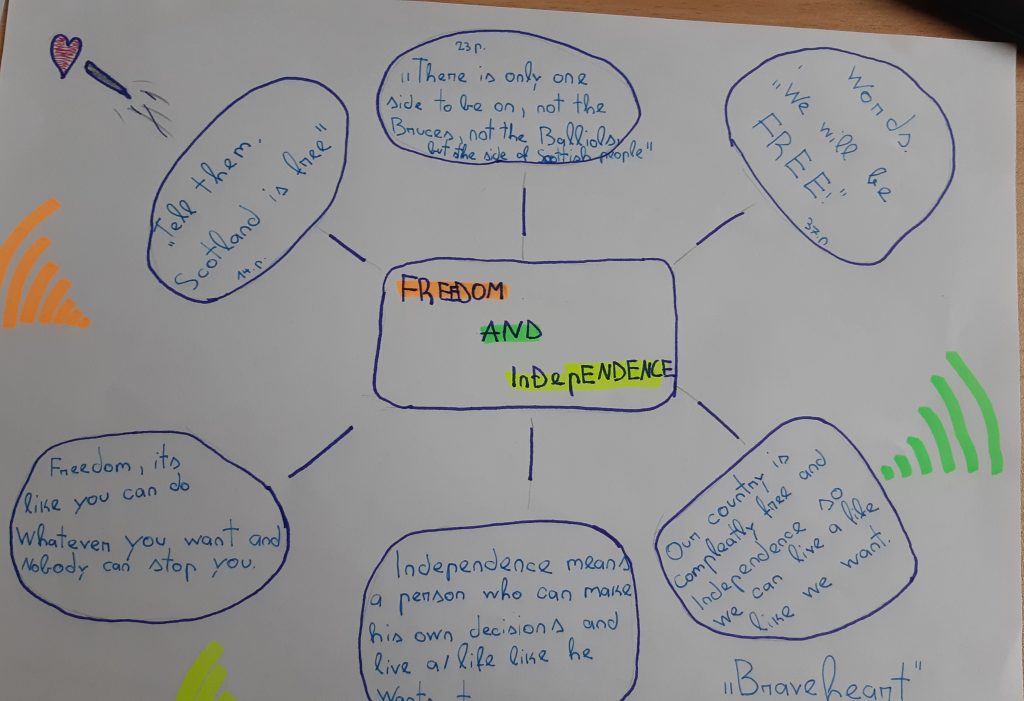 23 p.
„There is only one
side to be on, not the
Bruces, not the Balliols,
but the side of Scottish people"
„Tell them.
Scotland is free"
14.p.
Words.
"We will be
FREE!"
37.p
FREEDOM
AND
InDepENDENCE
Freedom, its
like you can do
Whatever you want and
Nobody can stop you.
Independence means
a person who can make
his own decisions and
live a life like he
Wants
Our country is
compleatly free and
Independence so
we can live a life
like we want.
„Braveheart"